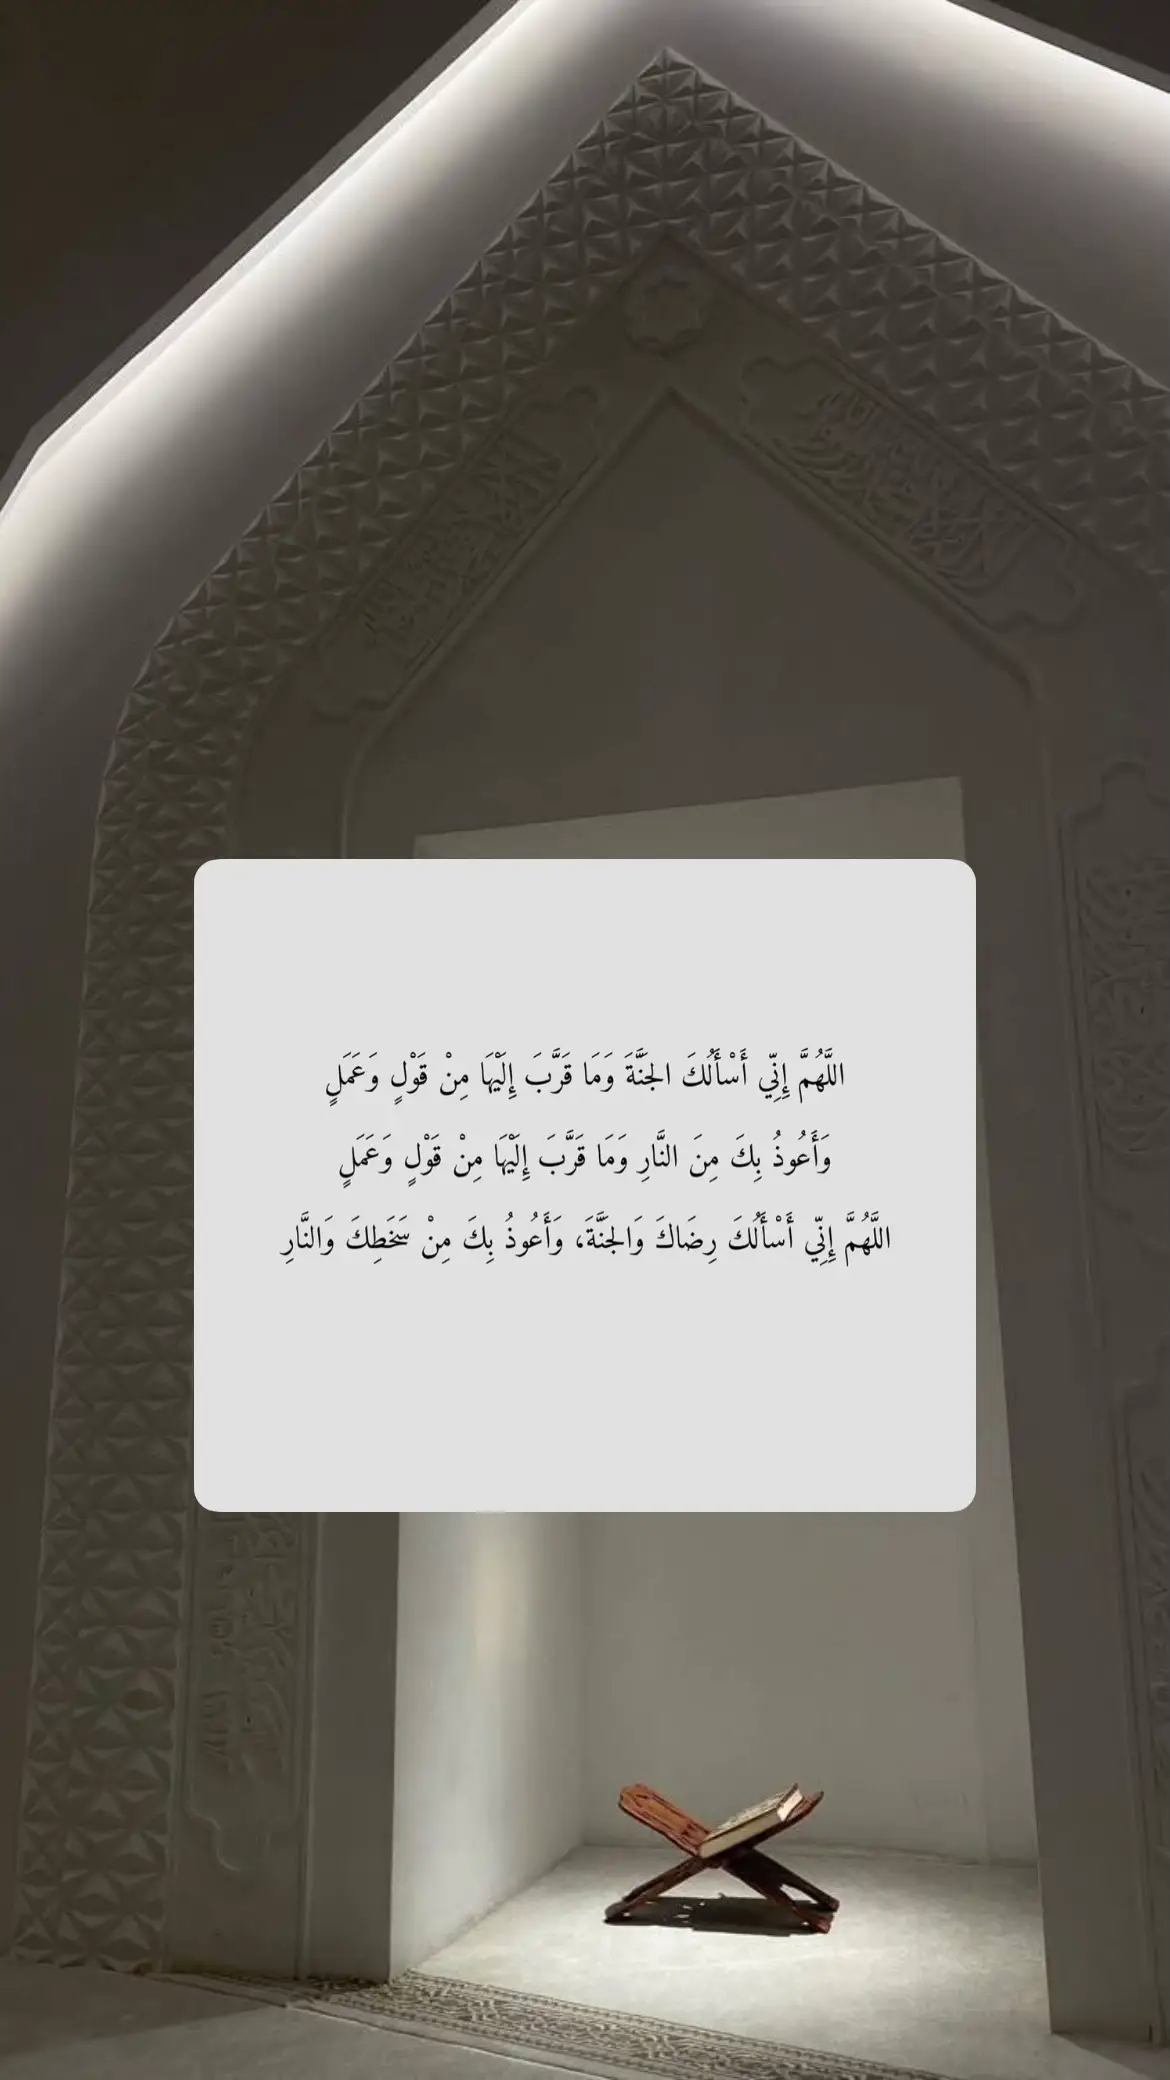 اللَّهُمَّ إِنِّي أَسْأَلُكَ الجَنَّةَ وَمَا قَرَّبَ إِلَيْهَا مِنْ قَوْلٍ وَعَمَلٍ
وَأَعُوذُ بِكَ مِنَ النَّارِ وَمَا قَرَّبَ إِلَيْهَا مِنْ قَوْلٍ وَعَمَلٍ
اللَّهُمَّ إِنِّي أَسْأَلُكَ رِضَاكَ وَالجَنَّةَ، وَأَعُوذُ بِكَ مِنْ سَخَطِكَ وَالنَّارِ